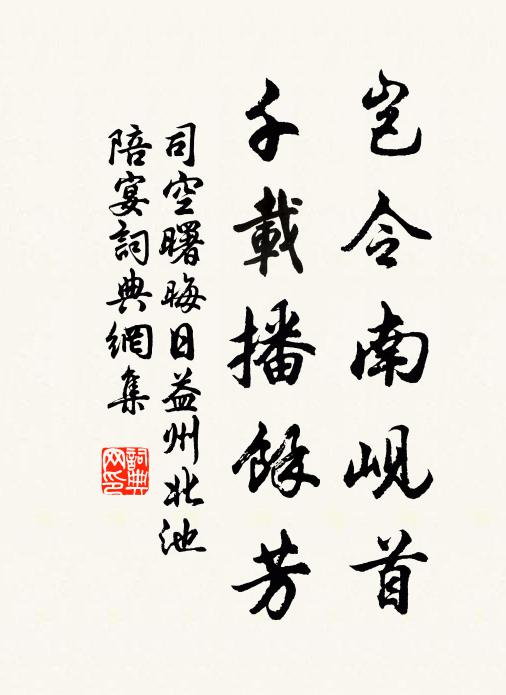 岂令南岘首
千載播餘芳
司空曙晦日益州北池
陪宴詞典網集
詞典
网印